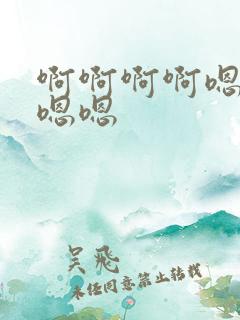 啊啊啊啊嗯
嗯嗯
吴飛
未经同意禁止转载